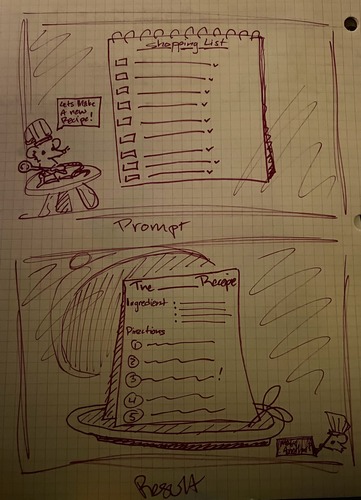 Shopping List
Lets Make
A new
Recipe!
Prompt
The ____ Recipe
Ingredients
Directions
1
2
3
!
4
5
Result